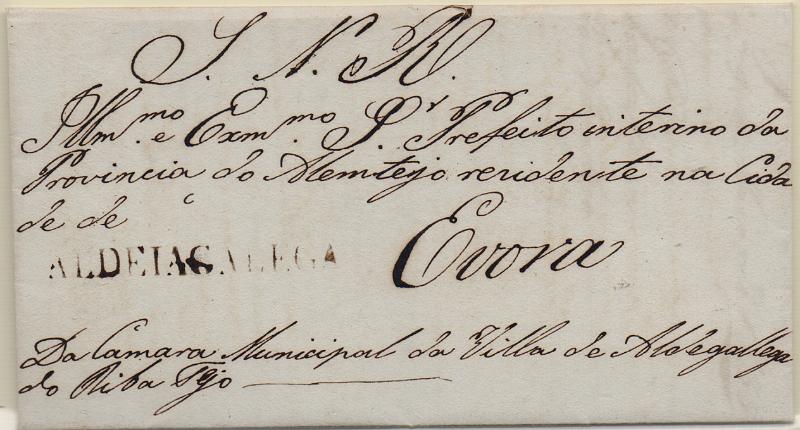 S. N. R.
Illm.mo e Exm.mo Sr. Prefeito interino da
Provincia do Alemtejo rezidente na Cida
de de
ALDEIAGALEGA Evora
Da Câmara Municipal da Villa de Aldegallega
do Riba Tejo